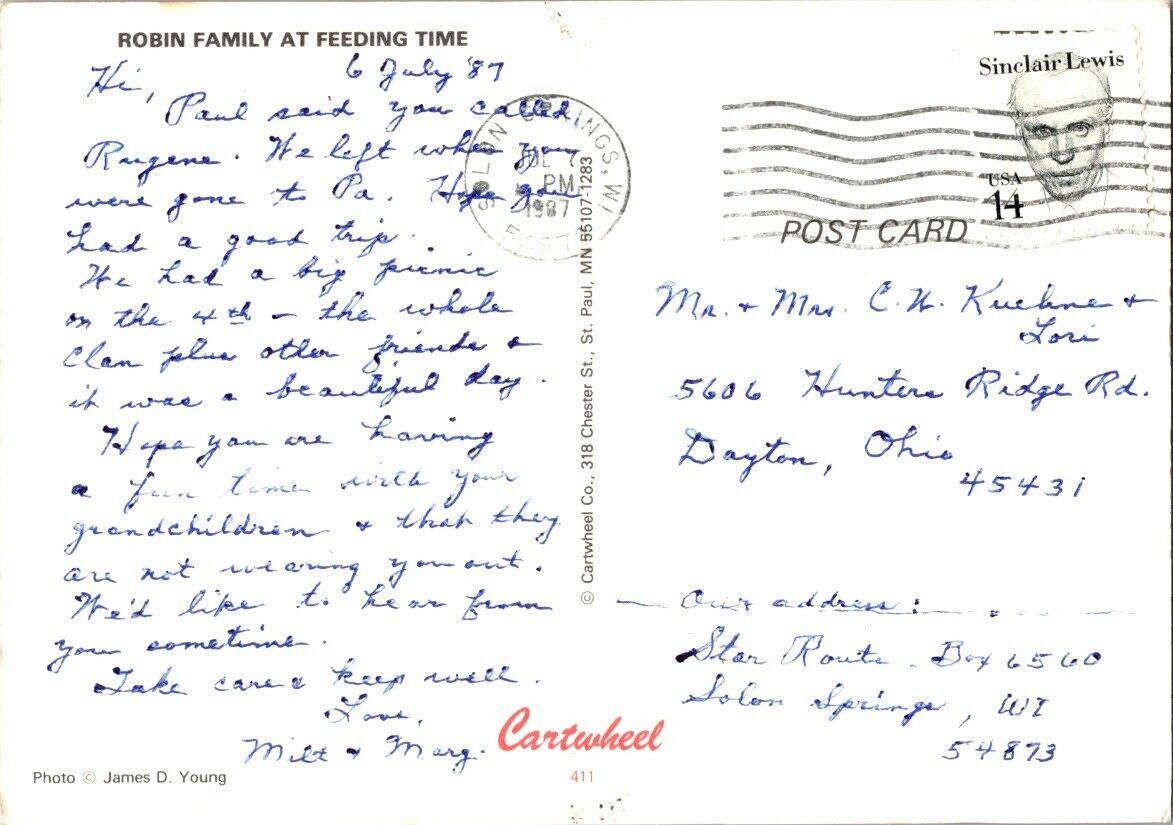 ROBIN FAMILY AT FEEDING TIME
6 July '87
Hi,
Paul said you called
Rugene. We left when you
were gone to Pa. Hope you
had a good trip.
We had a big picnic
on the 4th - the whole
Clan plus other friends &
it was a beautiful day.
Hope you are having
a fun time with your
grandchildren & that they
are not wearing you out.
We'd like to hear from
you sometime.
Take care & keep well.
Love,
Milt & Marg.
Photo © James D. Young
Cartwheel
411
© Cartwheel Co., 318 Chester St., St. Paul, MN 55107-1283
SOLON SPRINGS, WI
JUL 7
PM
1987
Sinclair Lewis
USA
14
POST CARD
Mr. & Mrs. C. W. Kuehne &
Lori
5606 Hunters Ridge Rd.
Dayton, Ohio
45431
Our address:
Star Route. Box 6560
Solon Springs, WI
54873